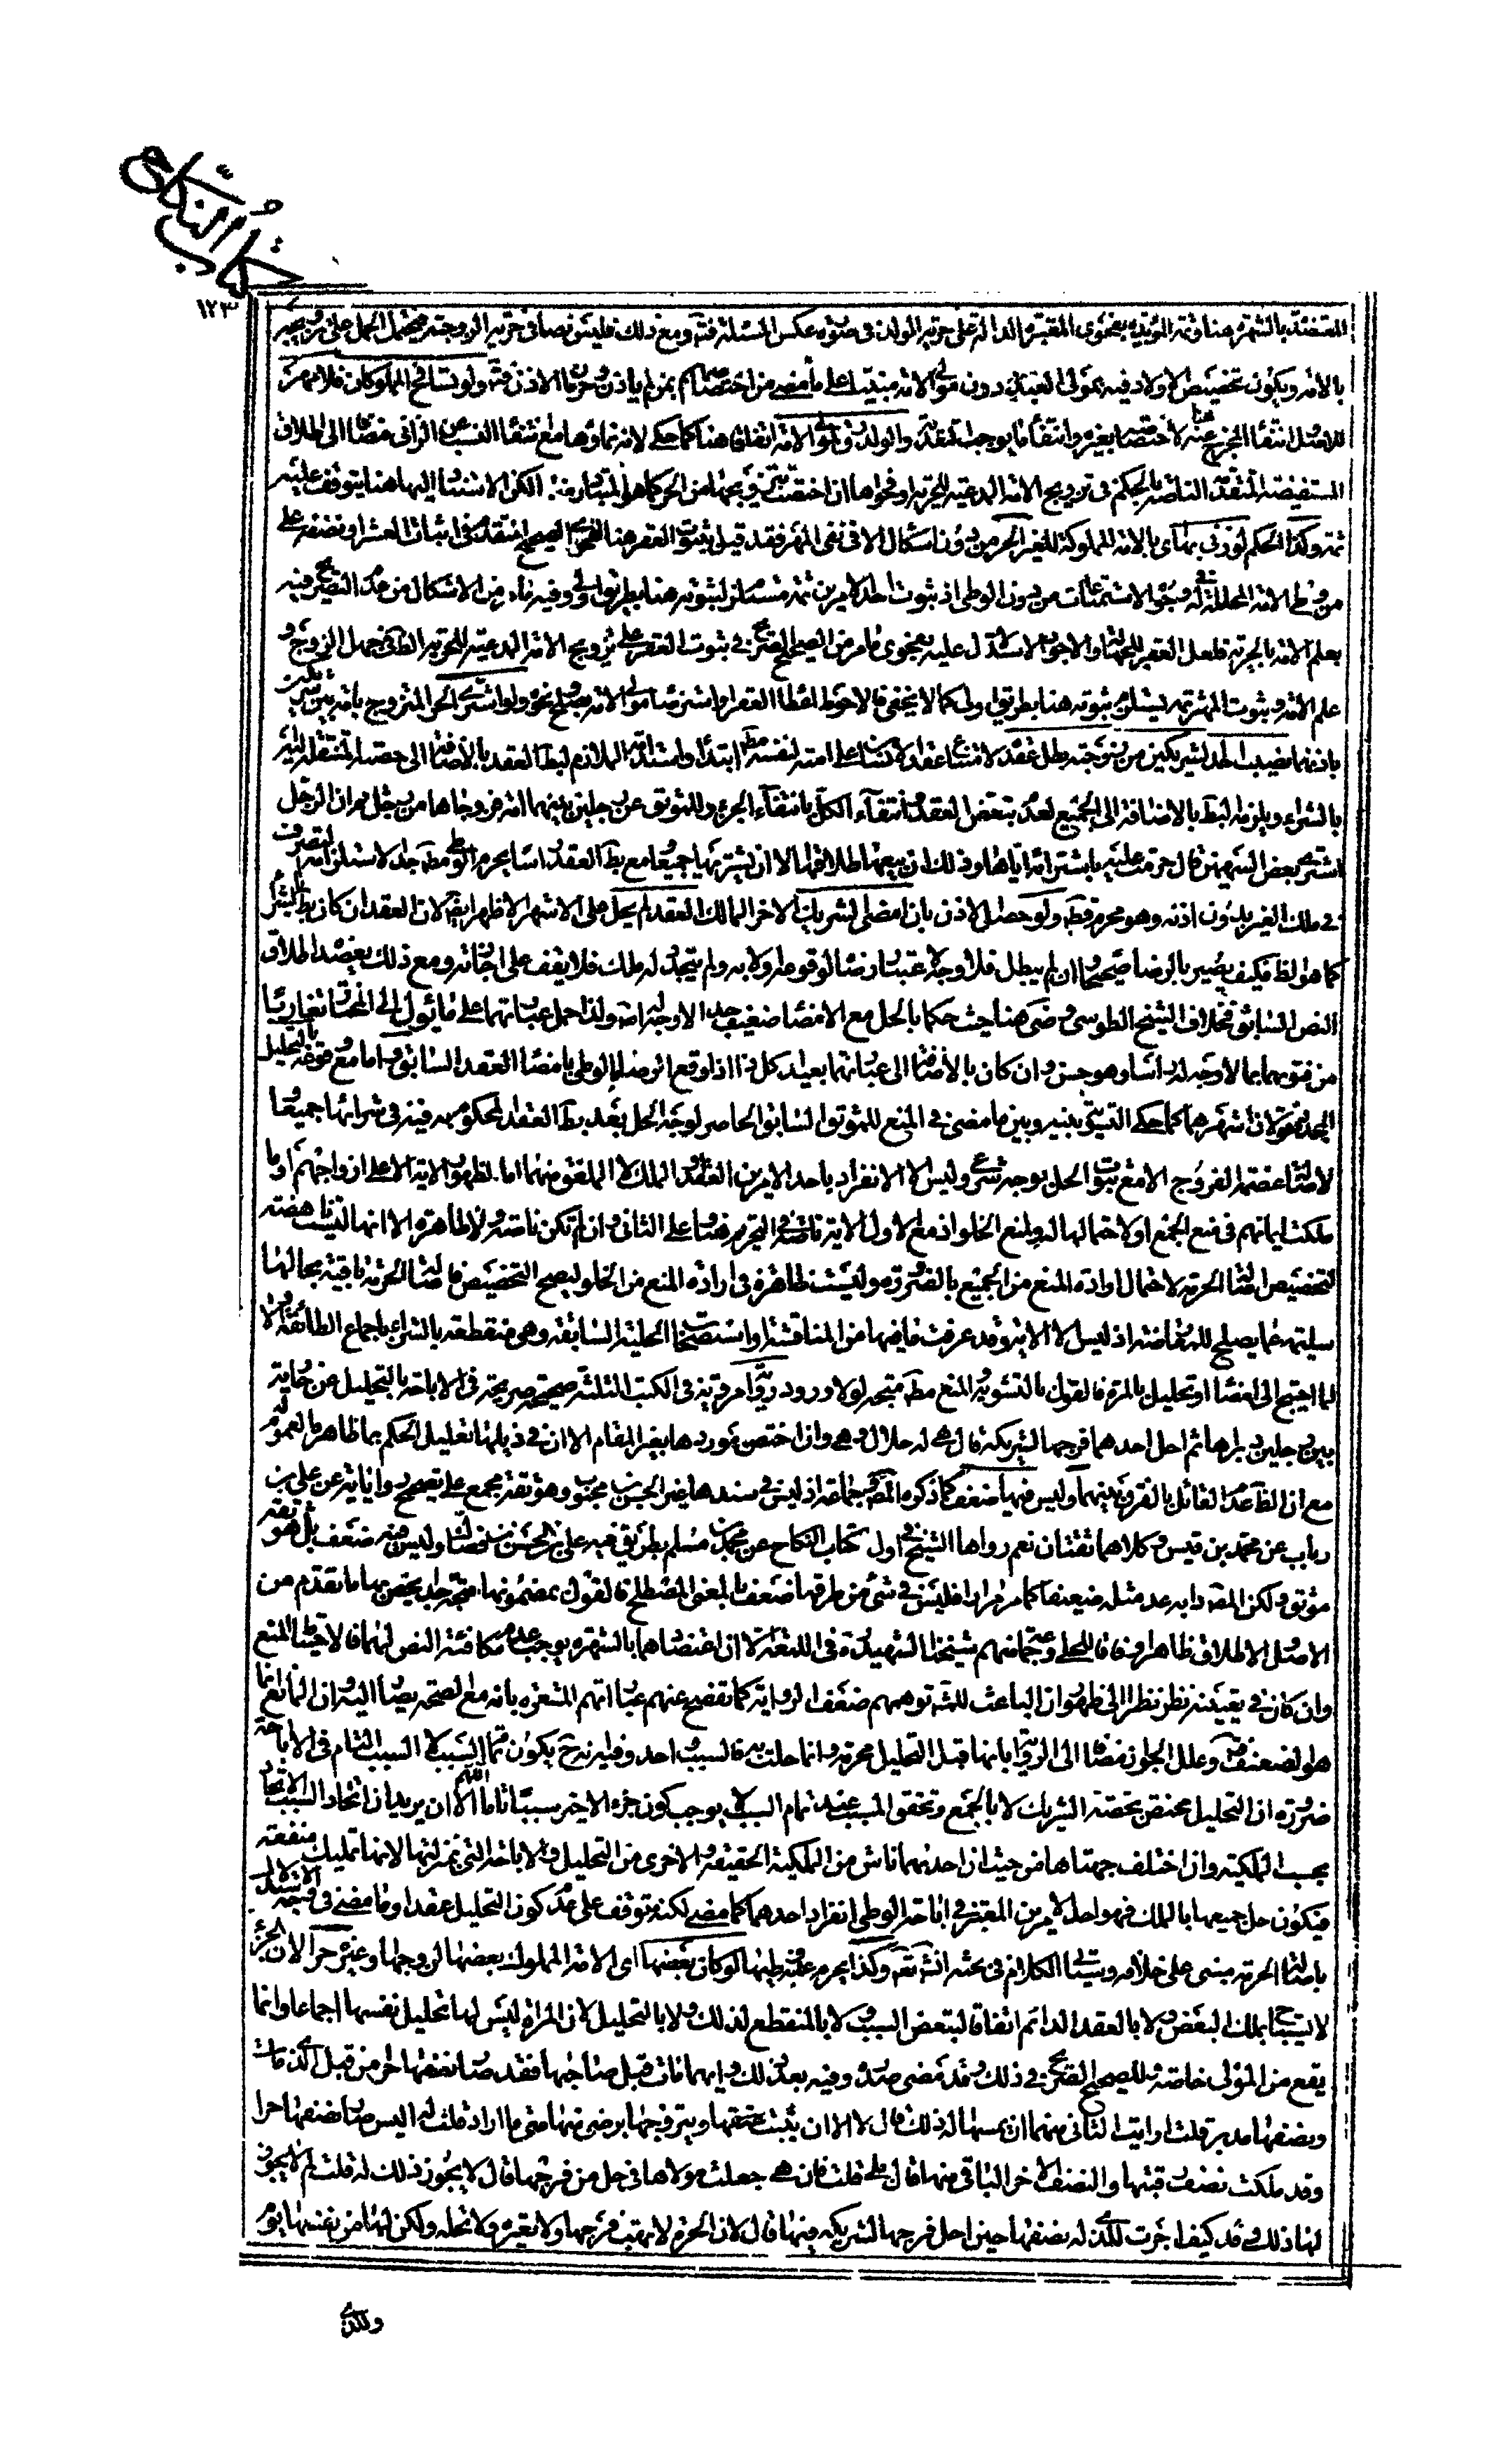 كتاب النكاح
١٢٣
المعتضدة بالشهرة هنا وثمة المؤيدة بفحوى المعتبرة الدالة على حرية الولد في صورة عكس المسئلة فتدبر ومع ذلك فليس نصا في حرية الزوجة محتمل الحمل على تزويجه
بالامة ويكون تخصيص الاولاد فيه بمولى العبد دون مولى الامة مبنيا على ما مضى من اختصاصهم بمن لم ياذن وحرمة الاذن فتدبر ولو تسافح المملوكان فلا مهر
للاصل انتفاء المخرج عنه هنا لاختصاصه بغيره وانتفاء ما يوجب لعقد والولد رق لمولى الامة اتفاقا هنا كما حكى لانه نماؤها مع انتفاء النسب عن الزاني مضافا الى اطلاق
المستفيضة المتقدمة الناصة بالحكم في تزويج الامة المدعية للحرية او فحواها ان اختصت بتزويجها من الحر كما هو المتبادر منه لكن الاستناد اليها هنا يتوقف عليه
ثمة وكذا الحكم لو زنى بها اي بالامة المملوكة للغير الحر من دون اشكال الا في نفي المهر فقد قيل بثبوت العقر هنا لفحوى الصحيح المتقدم في اثبات العشر او نصفه على
من وطئ الامة المحللة له في نحو الاستمتاعات من دون الوطي اذ ثبوت احد الامرين ثمة مستلزم لثبوته هنا بطريق اولى وفيه زياد من الاشكال من عدم التصريح فيه
بعلم الامة بالحرمة فلعل العقر لجهلها والاجود الاستدلال عليه بفحوى ما مر من الصحيح الصريح في ثبوت العقر على تزويج الامة المدعية للحرية الظ في جهل الزوج و
علم الامة وثبوت المهر ثمة يستلزم ثبوته هنا بطريق اولى كما لا يخفى فالاحوط اعطاء العقر او استرضاء مولى الامة بصلح ونحوه ولو اشترى الحر المتزوج بامة بين شريكين
باذنهما نصيب احد الشريكين من زوجته بطل عقده لامتناع عقد الانسان على امته لنفسه مطلقا ابتداء واستدامة الملازم لبطلان العقد بالاضافة الى حصته المنتقلة اليه
بالشراء ويلزمه البطلان بالاضافة الى الجميع لعدم تبعض العقد فانتفاء الكل بانتفاء الجزء وللموثق عن رجلين بينهما امة فزوجاها من رجل ثم ان الرجل
اشترى بعض السهمين قال حرمت عليه باشترائه اياها وذلك ان بيعها طلاقها الا ان يشتريها جميعا مع بطلان العقد اساسا يحرم الوطي مطلقا جدا لاستلزامه التصرف
في ملك الغير بدون اذنه وهو محرم قطعا ولو حصل الاذن بان امضى الشريك الاخر المالك العقد لم يحل على الاشهر الاظهر ايضا لان العقد ان كان بطل بالشراء
كما هو الظ فكيف يصير بالرضا صحيحا وان لم يبطل فلا وجه لاعتبار رضاه لوقوعه اولا به ولم يتجدد له ملك فلا يقف على اجازته ومع ذلك يعضد اطلاق
النص السابق فخلاف الشيخ الطوسي رضى هنا حيث حكما بالحل مع الامضاء ضعيف جدا الا وجه له ولذا حمل عبارتهما على ما يؤول الى المختار تفاديا
من فتويهما بما لا وجه له اساسا وهو حسن وان كان بالاضافة الى عبارتهما بعيد كل ذا اذا وقع الرضا بالوطي بامضاء العقد السابق واما مع وقوعه بالتحليل
الجديد فقولان اشهرهما كما حكى التسوية بينه وبين ما مضى في المنع للموثق السابق الحاصر لوجه الحل بعد بطلان العقد المحكوم به فيه في شرائها جميعا
لاصالة عصمة الفروج الا مع ثبوت الحل بوجه شرعي وليس الا الانفراد باحد الامرين العقد والملك لا الملفق منهما اما لظهور الاية الا على ازواجهم او ما
ملكت ايمانهم في منع الجمع او لاحتمالها له ولمنع الخلو اذ مع الاول الاية ناصة في التحريم هنا وعلى الثاني وان لم تكن ناصة ولا ظاهرة الا انها ليست ناهضة
لتخصيص اصالة الحرمة لاحتمال ارادة المنع من الجميع بالضرورة وليست ظاهرة في ارادة المنع من الخلو ليصح التخصيص فاصالة الحرمة باقية بحالها
سليمة عما يصلح للمعارضة اذ ليس الا الاية وقد عرفت ما فيها من المناقشة او استصحاب الحلية السابقة وهي منقطعة بالشراء باجماع الطائفة والا
لما احتيج الى امضاء او تحليل بالمرة فالقول بالتسوية المنع مطلقا متجه لولا ورود رواية مروية في الكتب الثلثة صحيحة صريحة في الاباحة بالتحليل عن جارية
بين رجلين دبراها ثم احل احدهما فرجها لشريكه قال هي له حلال وهي وان اختص موردها بغير المقام الا ان في ذيلها تعليل الحكم بما ظاهره العموم له
مع ان الظ عدم القائل بالفرق بينهما وليس فيها ضعف كما ذكره المص وجماعة اذ ليس في سندها غير الحسن بن محبوب وهو ثقة مجمع على تصحيح رواياته عن علي بن
رياب عن محمد بن قيس وكلاهما ثقتان نعم رواها الشيخ في اول كتاب النكاح عن محمد بن مسلم بطريق فيه علي بن الحسن بن فضال وليس فيه ضعف بل هو ثقة
موثق ولكن المص دابه عد مثله ضعيفا كما مر مرارا فليس في شئ من طرقها ضعف بالمعنى المصطلح فالقول بمضمونها متجه جدا يخص بها ما تقدم من
الاصل والاطلاق ظاهرا وفاقا للحلي وجماعة منهم شيخنا الشهيد ره في اللمعة الا ان اعتضادهما بالشهرة يوجب عدم مكافئة النص لهما فالاحتياط المنع
وان كان في تعيينه نظر نظرا الى ظهور ان الباعث للشهرة توهمهم ضعف الرواية كما تفصح عنهم عباراتهم المشعرة بانه مع الصحة يصار اليه وان المانع انما
هو لضعف وعلل الجواز مضافا الى الرواية بانها قبل التحليل محرمة وانما حلت به فالسبب واحد وفيه نظر ح يكون تمام السبب لا السبب التام في الاباحة
ضرورة ان التحليل مختص بحصة الشريك لا بالجميع وتحقق المسبب عند تمام السبب لا يوجب كون جزءه الاخير سببا تاما اللهم الا ان يريد ان اتحاد السبب الاتحاد
بحسب الملكية وان اختلف جهتاها من حيث ان احدهما ناش من الملكية الحقيقة والاخرى من التحليل والاباحة التي بمنزلتها لانها تمليك منفعة
فيكون حل جميعها بالملك فهو احد الامرين المعتبر في اباحة الوطي انفراد احدهما كما مضى لكنه يتوقف على عدم كون التحليل عقدا وما مضى في وجه الاستدلال
باصالة الحرمة مبنى على خلافه وسيتلى الكلام في بحثه انشاء الله تعالى وكذا يحرم عليه وطيها لو كان بعضها اي الامة المملوك بعضها لزوجها وغيره حرا لان الجزء
لا يستباح بملك البعض ولا بالعقد الدائم اتفاقا لتبعض السبب ولا بالمنقطع لذلك ولا بالتحليل لان المراة ليس لها تحليل نفسها اجماعا وانما
يقع من المولى خاصة وللصحيح الصريح في ذلك وقد مضى صدره وفيه بعد ذلك وايهما مات قبل صاحبه فقد صار نصفها حرا من قبل الذي مات
ونصفها مدبر قلت ارايت الثاني منهما ان يمسها اله ذلك قال لا الا ان يثبت عتقها ويتزوجها برضى منها متى ما اراد قلت له اليس صار نصفها حرا
وقد ملكت نصف رقبتها والنصف الاخر للباقي منهما قال بلى قلت فان هي جعلت مولاها في حل من فرجها قال لا يجوز ذلك له قلت لم لا يجوز
لها ذلك وقد كيف اجزت للذي له نصفها حين احل فرجها لشريكه فيها قال لان الحرة لا تهب فرجها ولا تعيره ولا تحله ولكن لها من نفسها يوم
وللذي